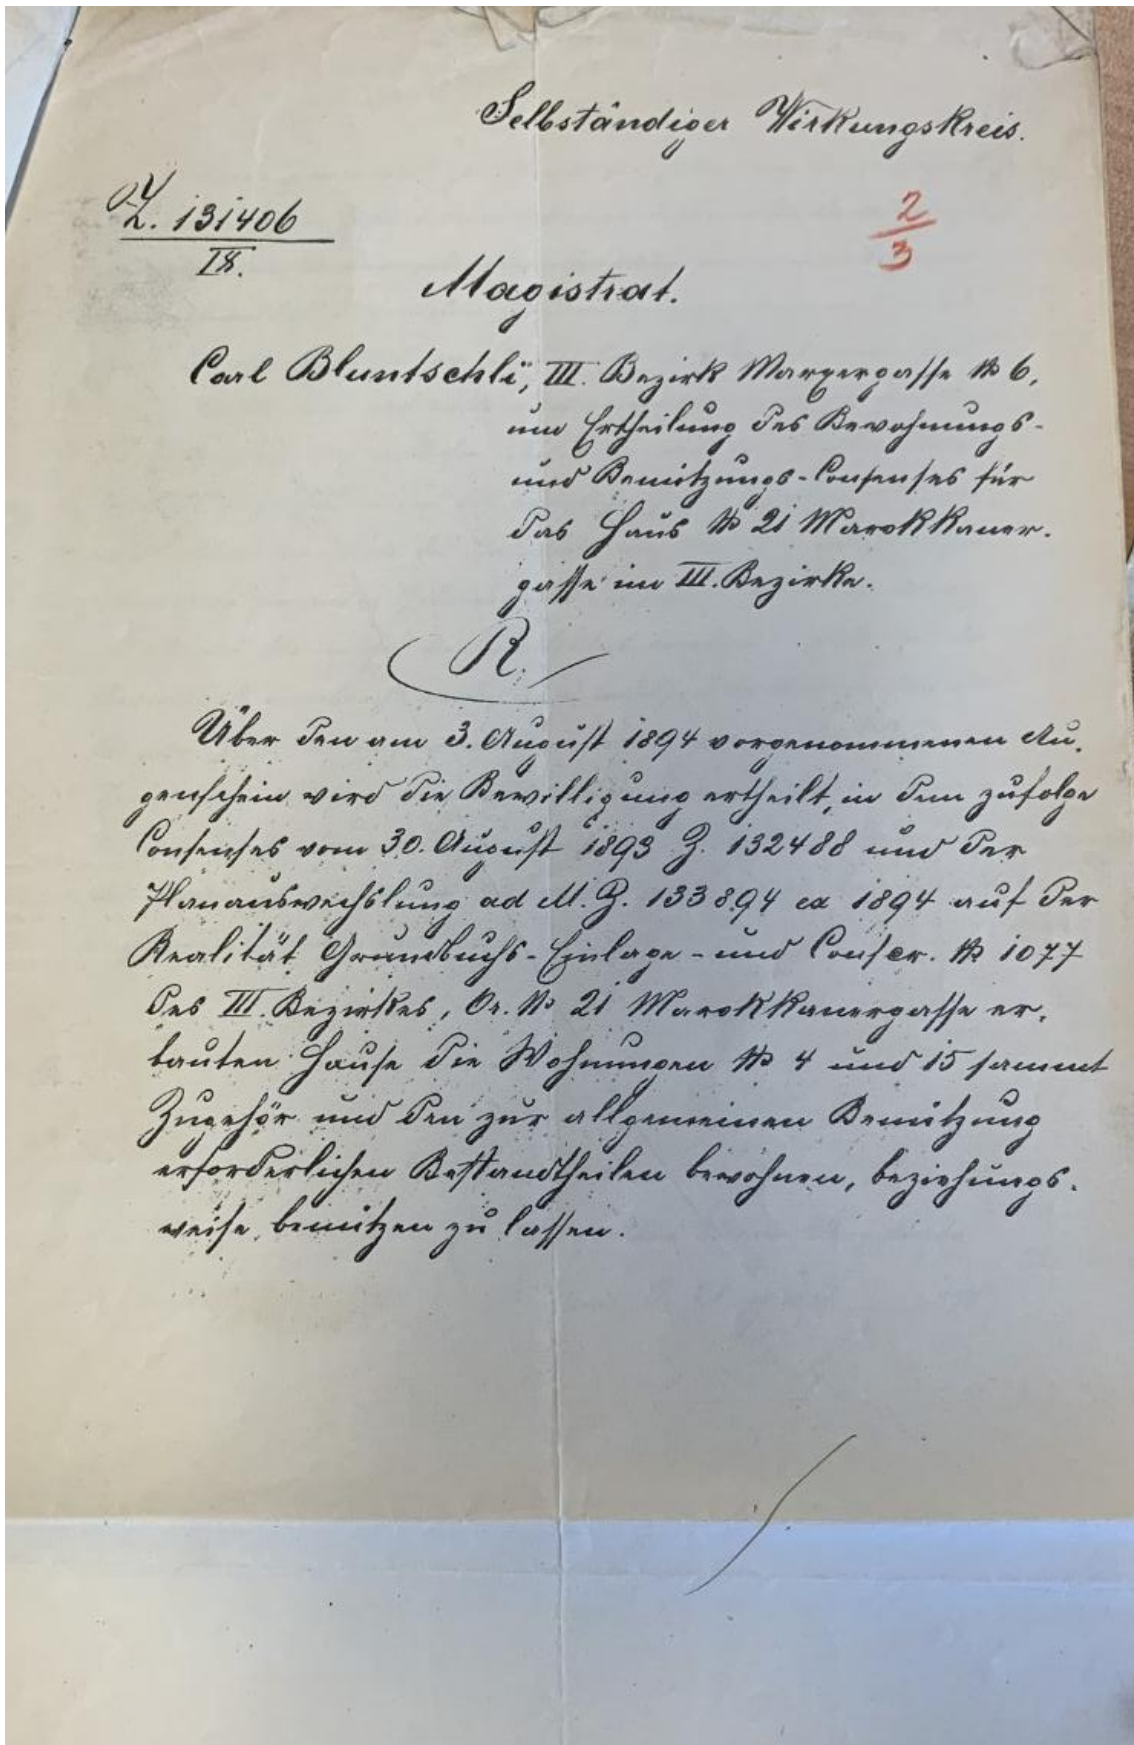 Selbständiger Wirkungskreis.
Z. 131406
IX.
2
3
Magistrat.
Carl Bluntschli, III. Bezirk Marxergasse № 6,
um Ertheilung des Bewohnungs-
und Benützungs-Consenses für
das Haus № 21 Marokkaner-
gasse im III. Bezirke.
R.
Über den am 3. August 1894 vorgenommenen Au-
genschein wird die Bewilligung ertheilt, in dem zufolge
Consenses vom 30. August 1893 Z. 132488 und der
Planauswechslung ad M. Z. 133894 ex 1894 auf der
Realität Grundbuchs-Einlage- und Conscr. № 1077
des III. Bezirkes, Or. № 21 Marokkanergasse er-
bauten Hause die Wohnungen № 4 und 15 sammt
Zugehör und den zur allgemeinen Benützung
erforderlichen Bestandtheilen bewohnen, beziehungs-
weise benützen zu lassen.